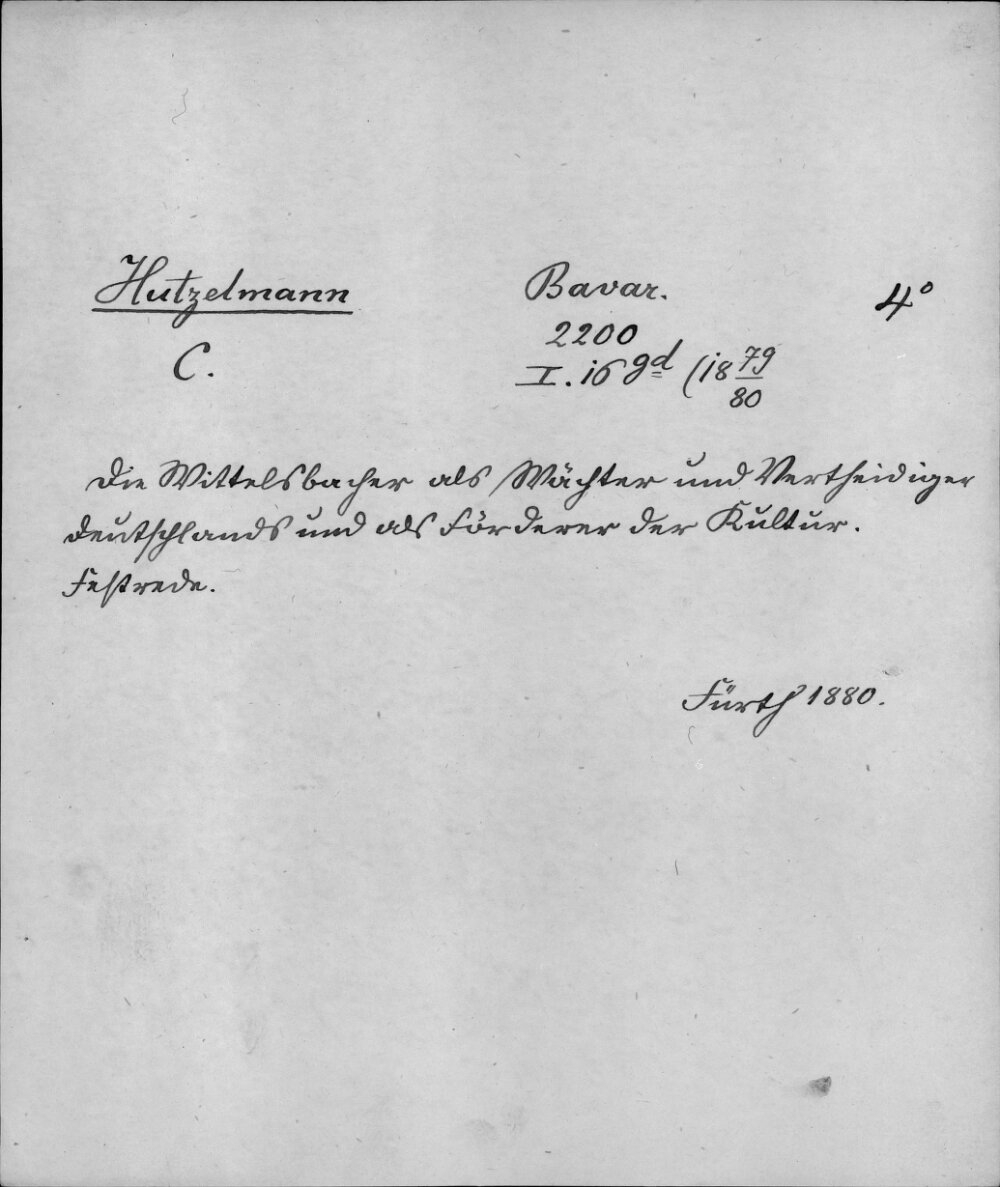 Hutzelmann Bavar. 4°
C. 2200
I. 16 gd (18 79/80
Die Wittelsbacher als Wächter und Vertheidiger
Deutschlands und als Förderer der Kultur.
Festrede.
Fürth 1880.